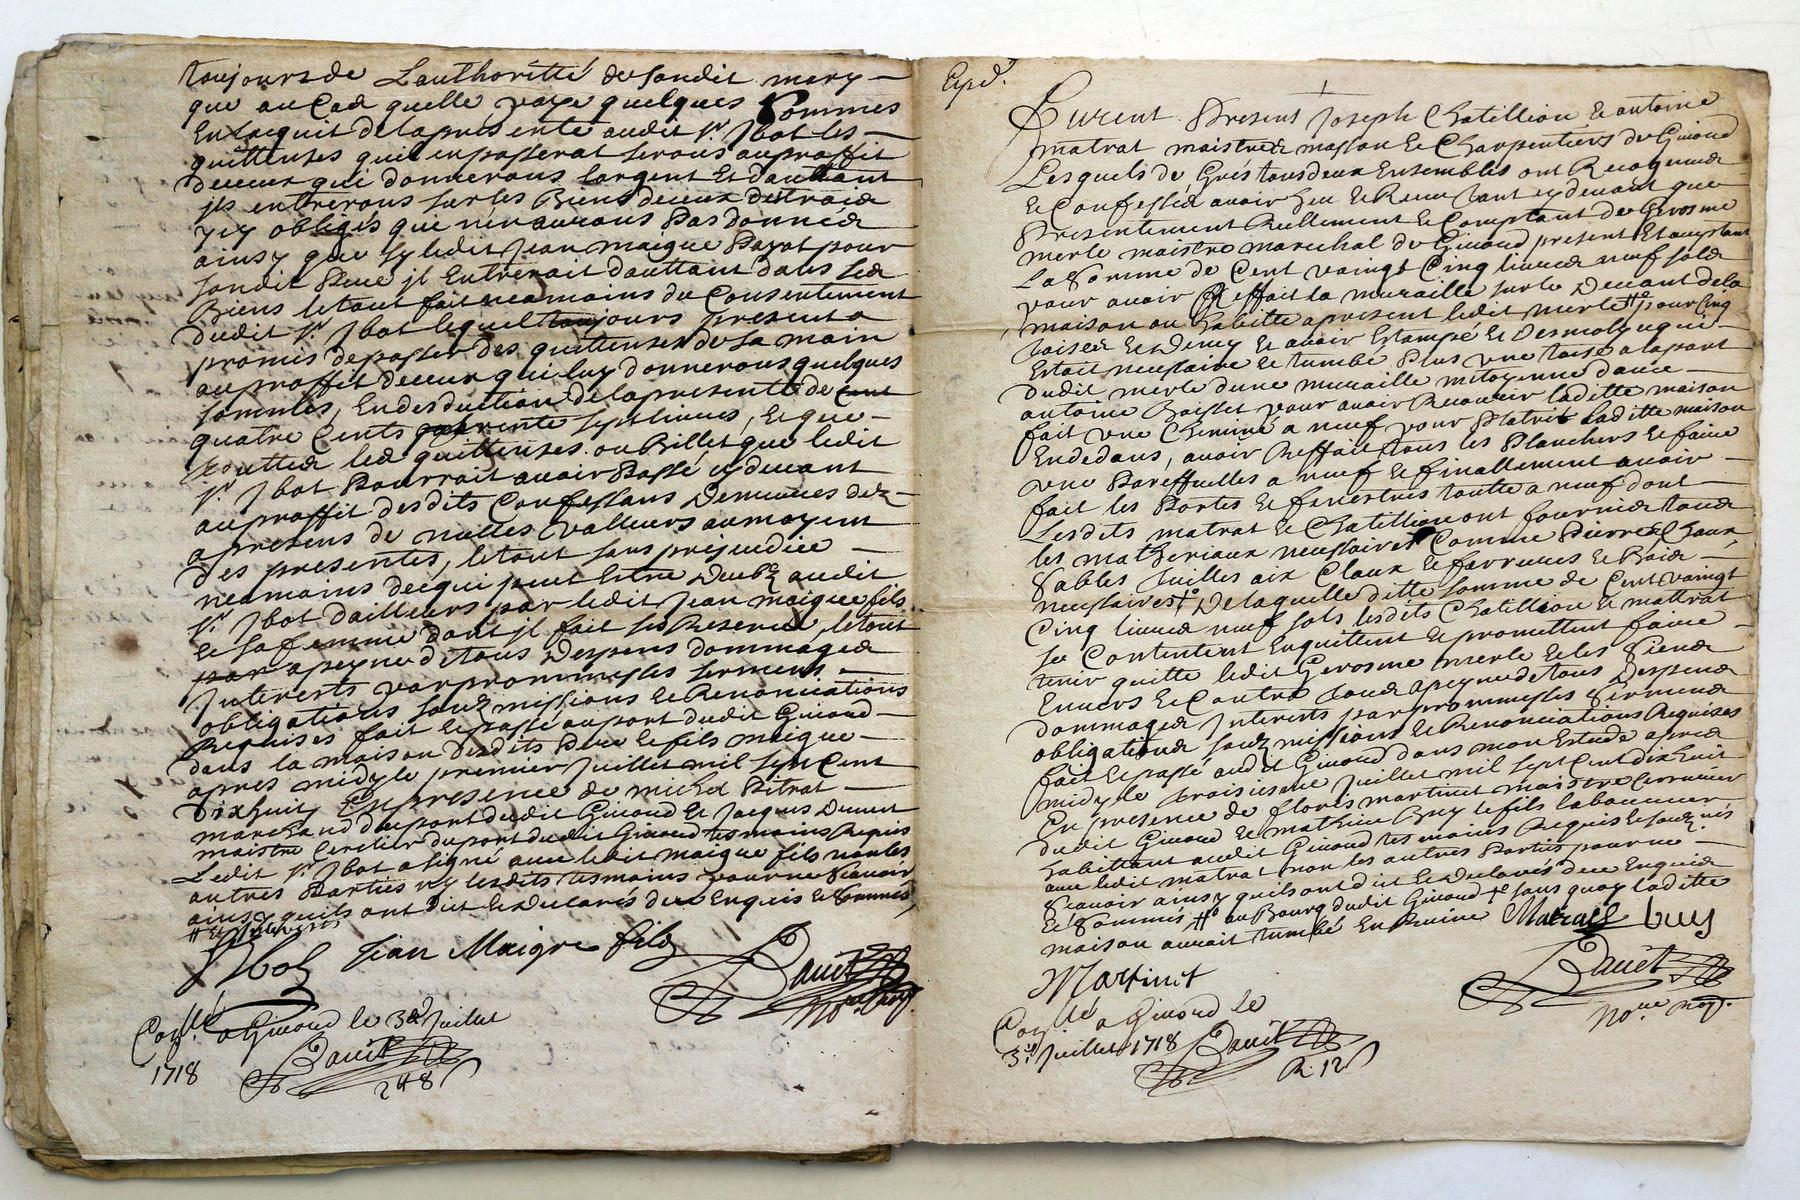 toujours de Lauthoritté de sondit mary –
que au Cas quelle paye quelques Sommes
En lacquit de la presente audit Sr Jbot les –
quittenses quil en passerat serons au proffit
deceux qui donnerons largent Et dauttant
jls entrerons sur les Biens deceux desdits
y obligés qui nen aurons Pas donnés
ainsy que sy ledit Jean maigue Payat pour
sondit Pere jl Entrerait dauttant dans Ses
Biens le tout fait neamoins du Consentement
dudit Sr Jbot lequel toujours present a
promis de passer des quittenses de sa main
au proffit deceux qui luy donnerons quelques
sommes, En desduction de la presente de Cent
quatre Cents quarente sept livres, Et que –
touttes les quittenses ou Billet que ledit
Sr Jbot Pourrait avoir Passé cy devant
au proffit desdits Confessans Demeures dez –
apresens de nulles valleurs au moyent
des presentes, le tout sans prejuidice –
neamoins de ce qui peut Estre deub audit
Sr Jbot dailleurs par ledit Jean maigue fils
Et sa femme dont jl fait ses Reserves, le tout
par apeyne de tous Despens dommages
Jnterests par prommesses serments –
obligations soubmissions Et Renonciations
Requises fait Et passé au port dudit Givord –
dans la maison desdits Pere Et fils maigue –
apres midy le premier Juillet mil sept Cent
Dixhuit, En presence de michel Pitrat –
marchand du port dudit Givord Et Jacques
maistre Cerclier du port dudit Givord tesmoins Requis
Ledit Sr Jbot a signé avec ledit maigue fils non les
autres Parties ny lesdits tesmoins pour ne scavoir
ainsy quils ont Dict Et Declarés deux Enquis Et Sommés
# Et Interests
Jbot Jean Maigre fils
Bauit
Nore Roy.
Conllé a Givord le 3e Juillet
1718 Bauit
Expd.
Furent Present Joseph Chatillion Et antoine
matrat maistres masson Et Charpentiers de Givord
Lesquels de Grés tous deux Ensembles ont Recognus
Et Confessés avoir heu Et Receu tant cy devant que
Presentement Reellement Et Comptant de Gerosme
merle maistre marechal de Givord present Et acceptant
La Somme de Cent vaingt Cinq livres neuf sols
pour avoir Reffait la muraille sur le Devant de la
maison ou habitte apresent ledit merle # pour Cinq
toises Et Demy Et avoir Estampé Et Desmoly ce qui
Estait nessaire Et tumbé Plus une toise a la part
dudit merle dune muraille mitoyenne davec –
antoine pour avoir Recouvir laditte maison
fait une Cheminé a neuf pour Platrir laditte maison
En dedans, avoir Reffait tous les Planchers Et faire
une a neuf Et finallement avoir –
fait les Portes Et fenestres toutte a neuf dont –
Lesdits matrat Et Chatillion ont fournies tous
les matheriaux nessaires Comme Pierres Chaux
Sables tuilles aix Cloux Et farrures Et Bois –
nessaires De laquelle ditte somme de Cent vaingt
Cinq livres neuf sols lesdits Chatillion Et mattrat
se Contentent En quittent Et promettent faire –
tenir quitte ledit Gerosme merle Et les Siens
Envers Et Contre tous apeyne de tous Despens
dommages Jnterests par prommesses Serments
obligations soubmissions Et Renonciations Requises
fait Et passé audit Givord dans mon Estude apres
midy le troisiesme Juillet mil sept Cent dix huit
En presence de flores martinet maistre Cerrurier
dudit Givord Et mathieu Guy le fils laboureur
habittant audit Givord tesmoins Requis Et soubznés
avec ledit matrat non les autres Parties pour ne –
Scavoir ainsy quils ont dict Et Declarés deux Enquis
Et Sommés # au Bourg dudit Givord # sans quoy laditte
maison aurait tumbé En Ruine Matrat Guy
Martinet
Bauit
Nore Roy.
Conllé a Givord le
3e Juillet 1718 Bauit
R. 12